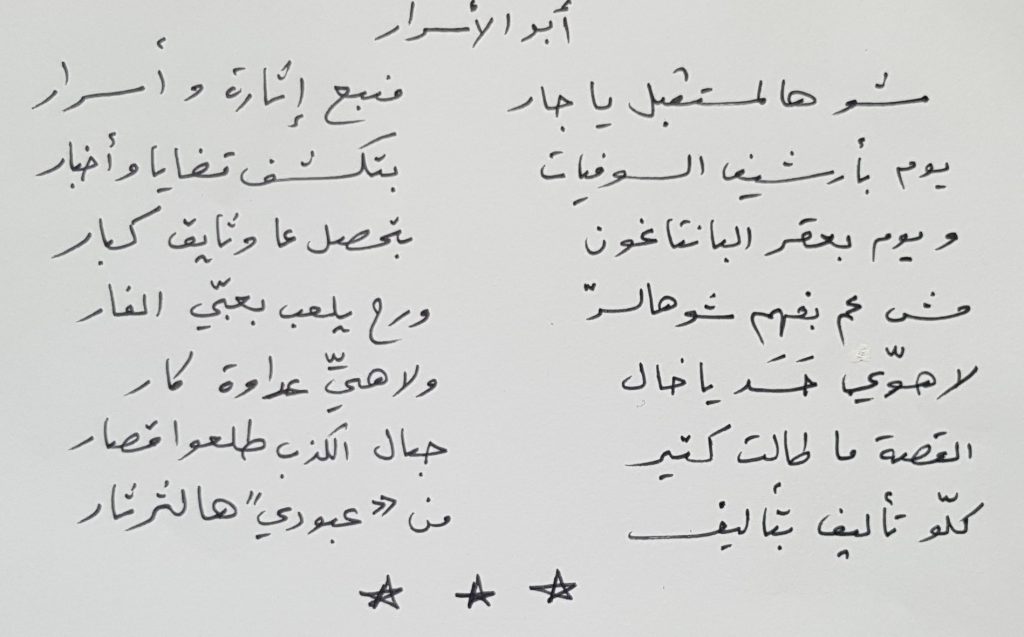 أبو الأسرار
شو هالمستقبل يا جار منبع إثارة و أسرار
يوم بأرشيف السوفيات بتكشف قضايا وأخبار
ويوم بعقر البانتاغون بتحصل عا وثايق كبار
مش عم بفهم شو هالسرّ ورح يلعب بعبّي الفار
لا هوّي حَسَد يا خال ولا هيّ عداوة كار
القصة ما طالت كتير حبال الكذب طلعوا قصار
كلّو تأليف بتأليف من «عبودي" هالثرثار